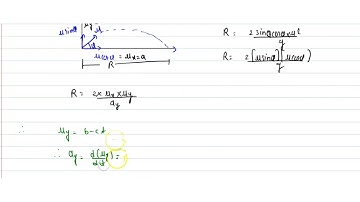 u sinα uy u
α
u cosα = ux = a
R
R = 2 sinα cosα × u² / g
R = 2[u sinα][u cosα] / g
R = 2 × ux × uy / ay
∴ uy = b - ct
∴ ay = d(uy) / dt =